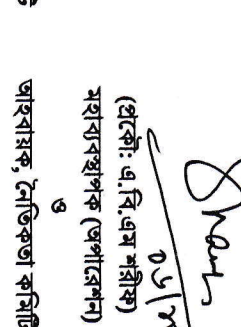 (প্রকৌঃ এ.বি.এম শরীফ)
মহাব্যবস্থাপক (অপারেশন)
ও
আহবায়ক, নৈতিকতা কমিটি